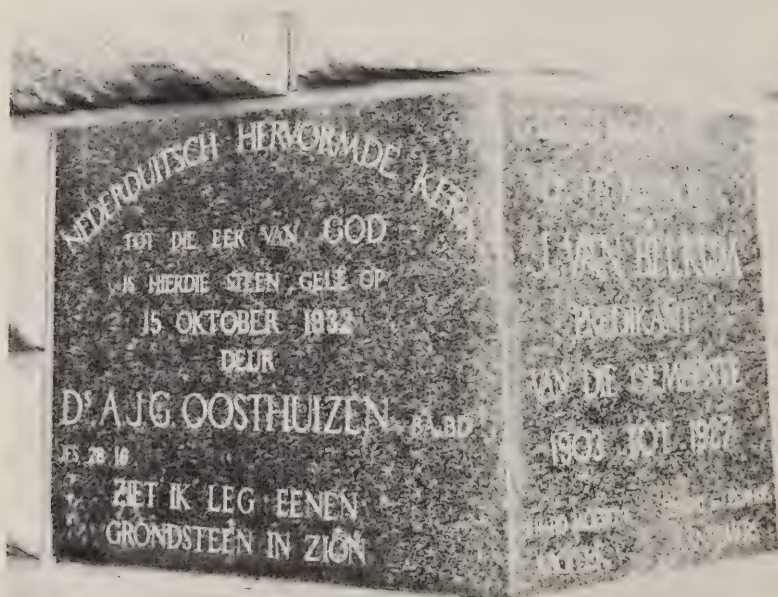 NEDERDUITSCH HERVORMDE KERK
TOT DIE EER VAN GOD
IS HIERDIE STEEN GELÊ OP
15 OKTOBER 1932
DEUR
Ds A.J.G. OOSTHUIZEN B.A. B.D.
JES. 28:16
ZIET IK LEG EENEN
GRONDSTEEN IN ZION
J. VAN BELKUM
PREDIKANT
VAN DIE GEMEENTE
1903 TOT 1927